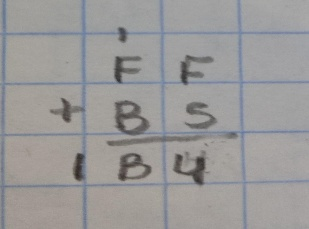 1
F F
+ B 5
1 B 4